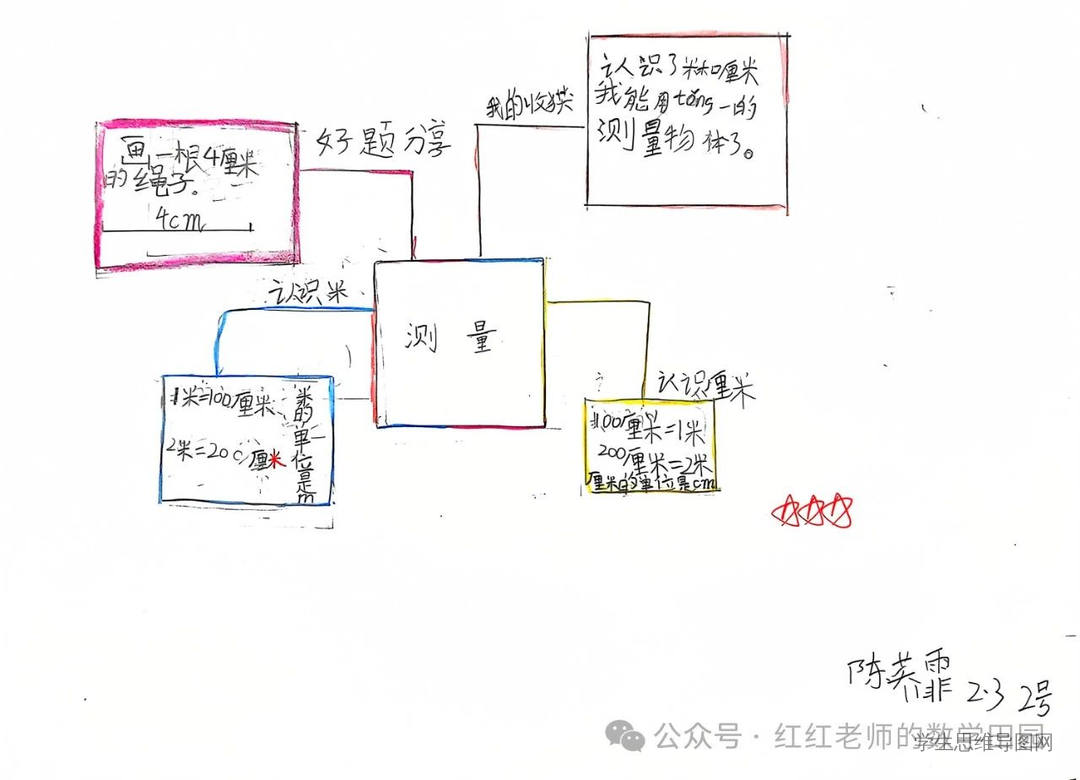 好题分享
画一根4厘米
的绳子。
4cm
我的收获
认识了米和厘米
我能用tǒng一的
测量物体了。
测量
认识米
1米=100厘米
2米=200厘米
米的单位是m
认识厘米
100厘米=1米
200厘米=2米
厘米的单位是cm
陈 霏 2.3 2号
公众号·红红老师的数学田园
学生思维导图网